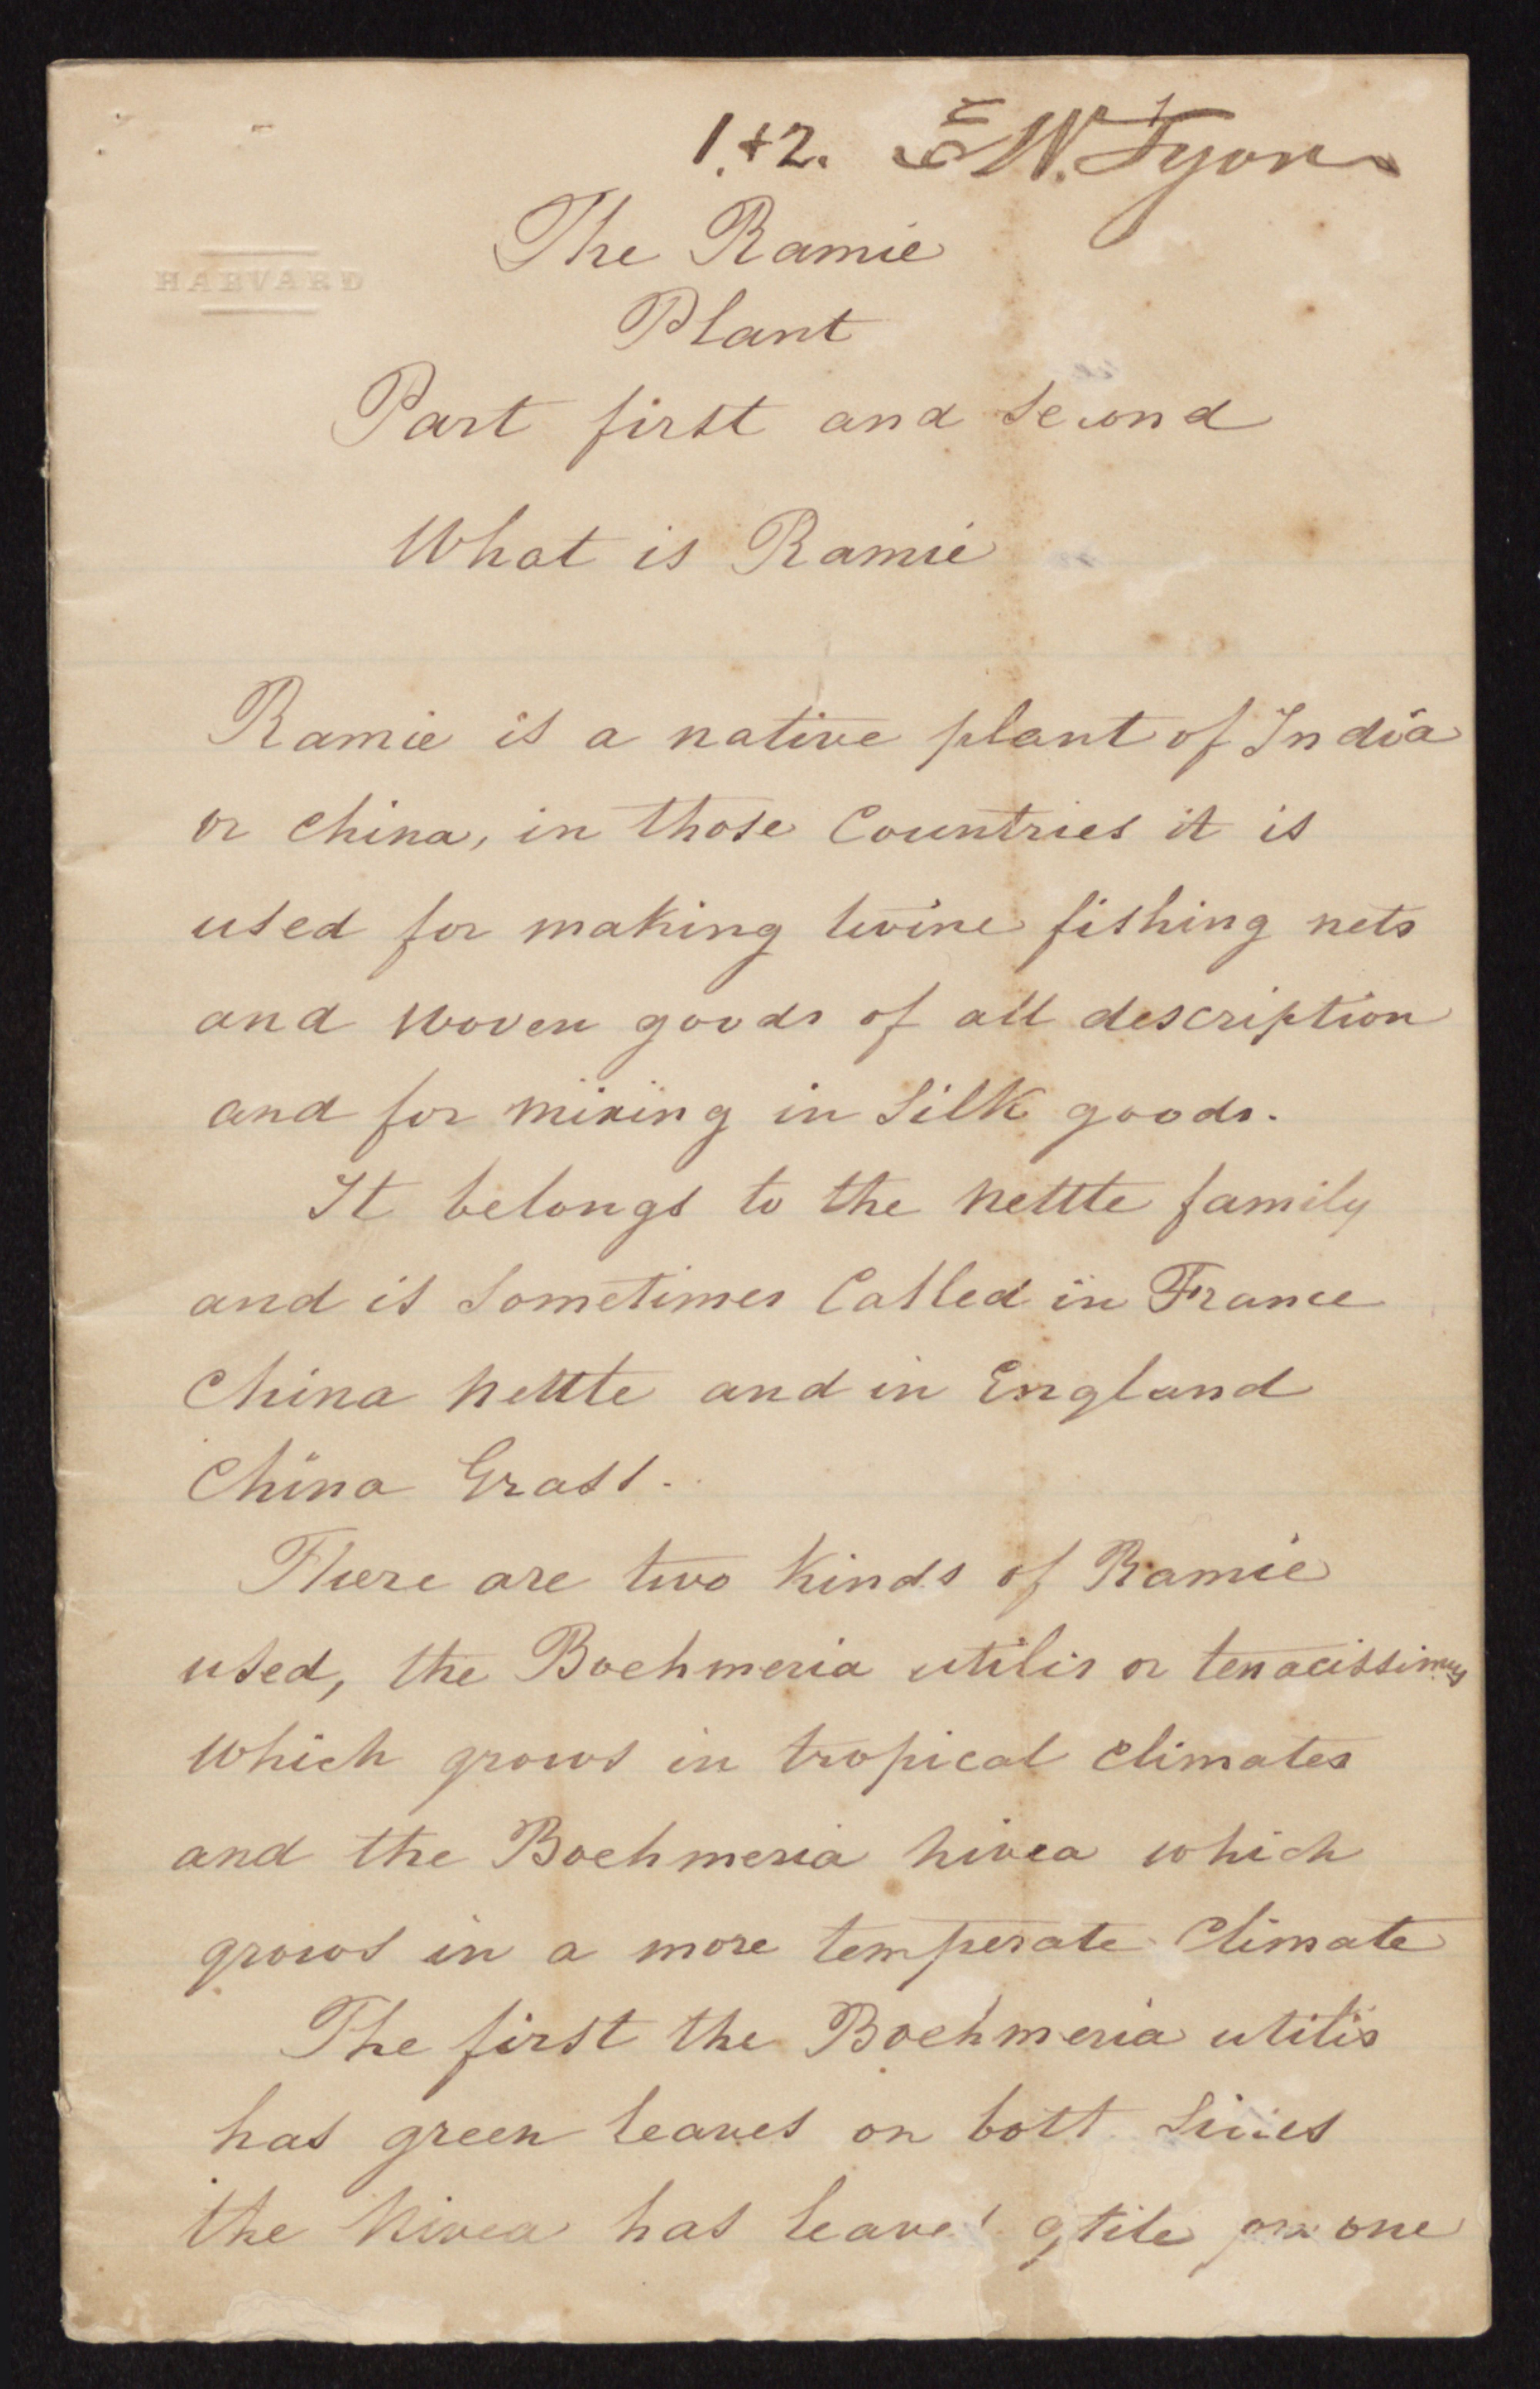 1.+2. E W. Fyon
HARVARD
The Ramie
Plant
Part first and Second
What is Ramie
Ramie is a native plant of India
or china, in those Countries it is
used for making twine fishing nets
and woven goods of all description
and for mixing in Silk goods.
It belongs to the nettle family
and is Sometimes Called in France
China nettle and in England
China Grass.
There are two kinds of Ramie
used, the Boehmeria utilis or tenacissimus
which grows in tropical climates
and the Boehmeria nivea which
grows in a more temperate Climate
The first the Boehmeria utilis
has green leaves on both Sides
the Nivea has leaves on one